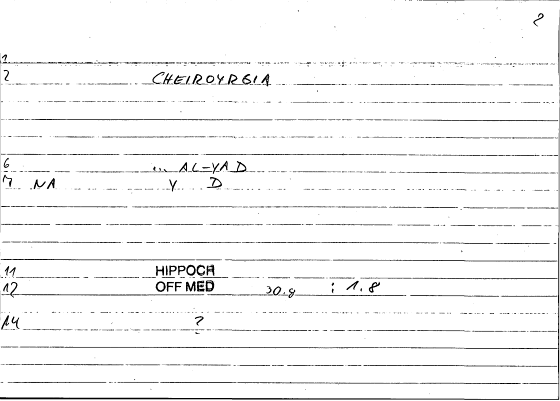 2
1
2 CHEIROYRGIA
6 ... AL-YAD
7 NA Y D
11 HIPPOCR
12 OFF MED 30.8 : 1.8
14 ?